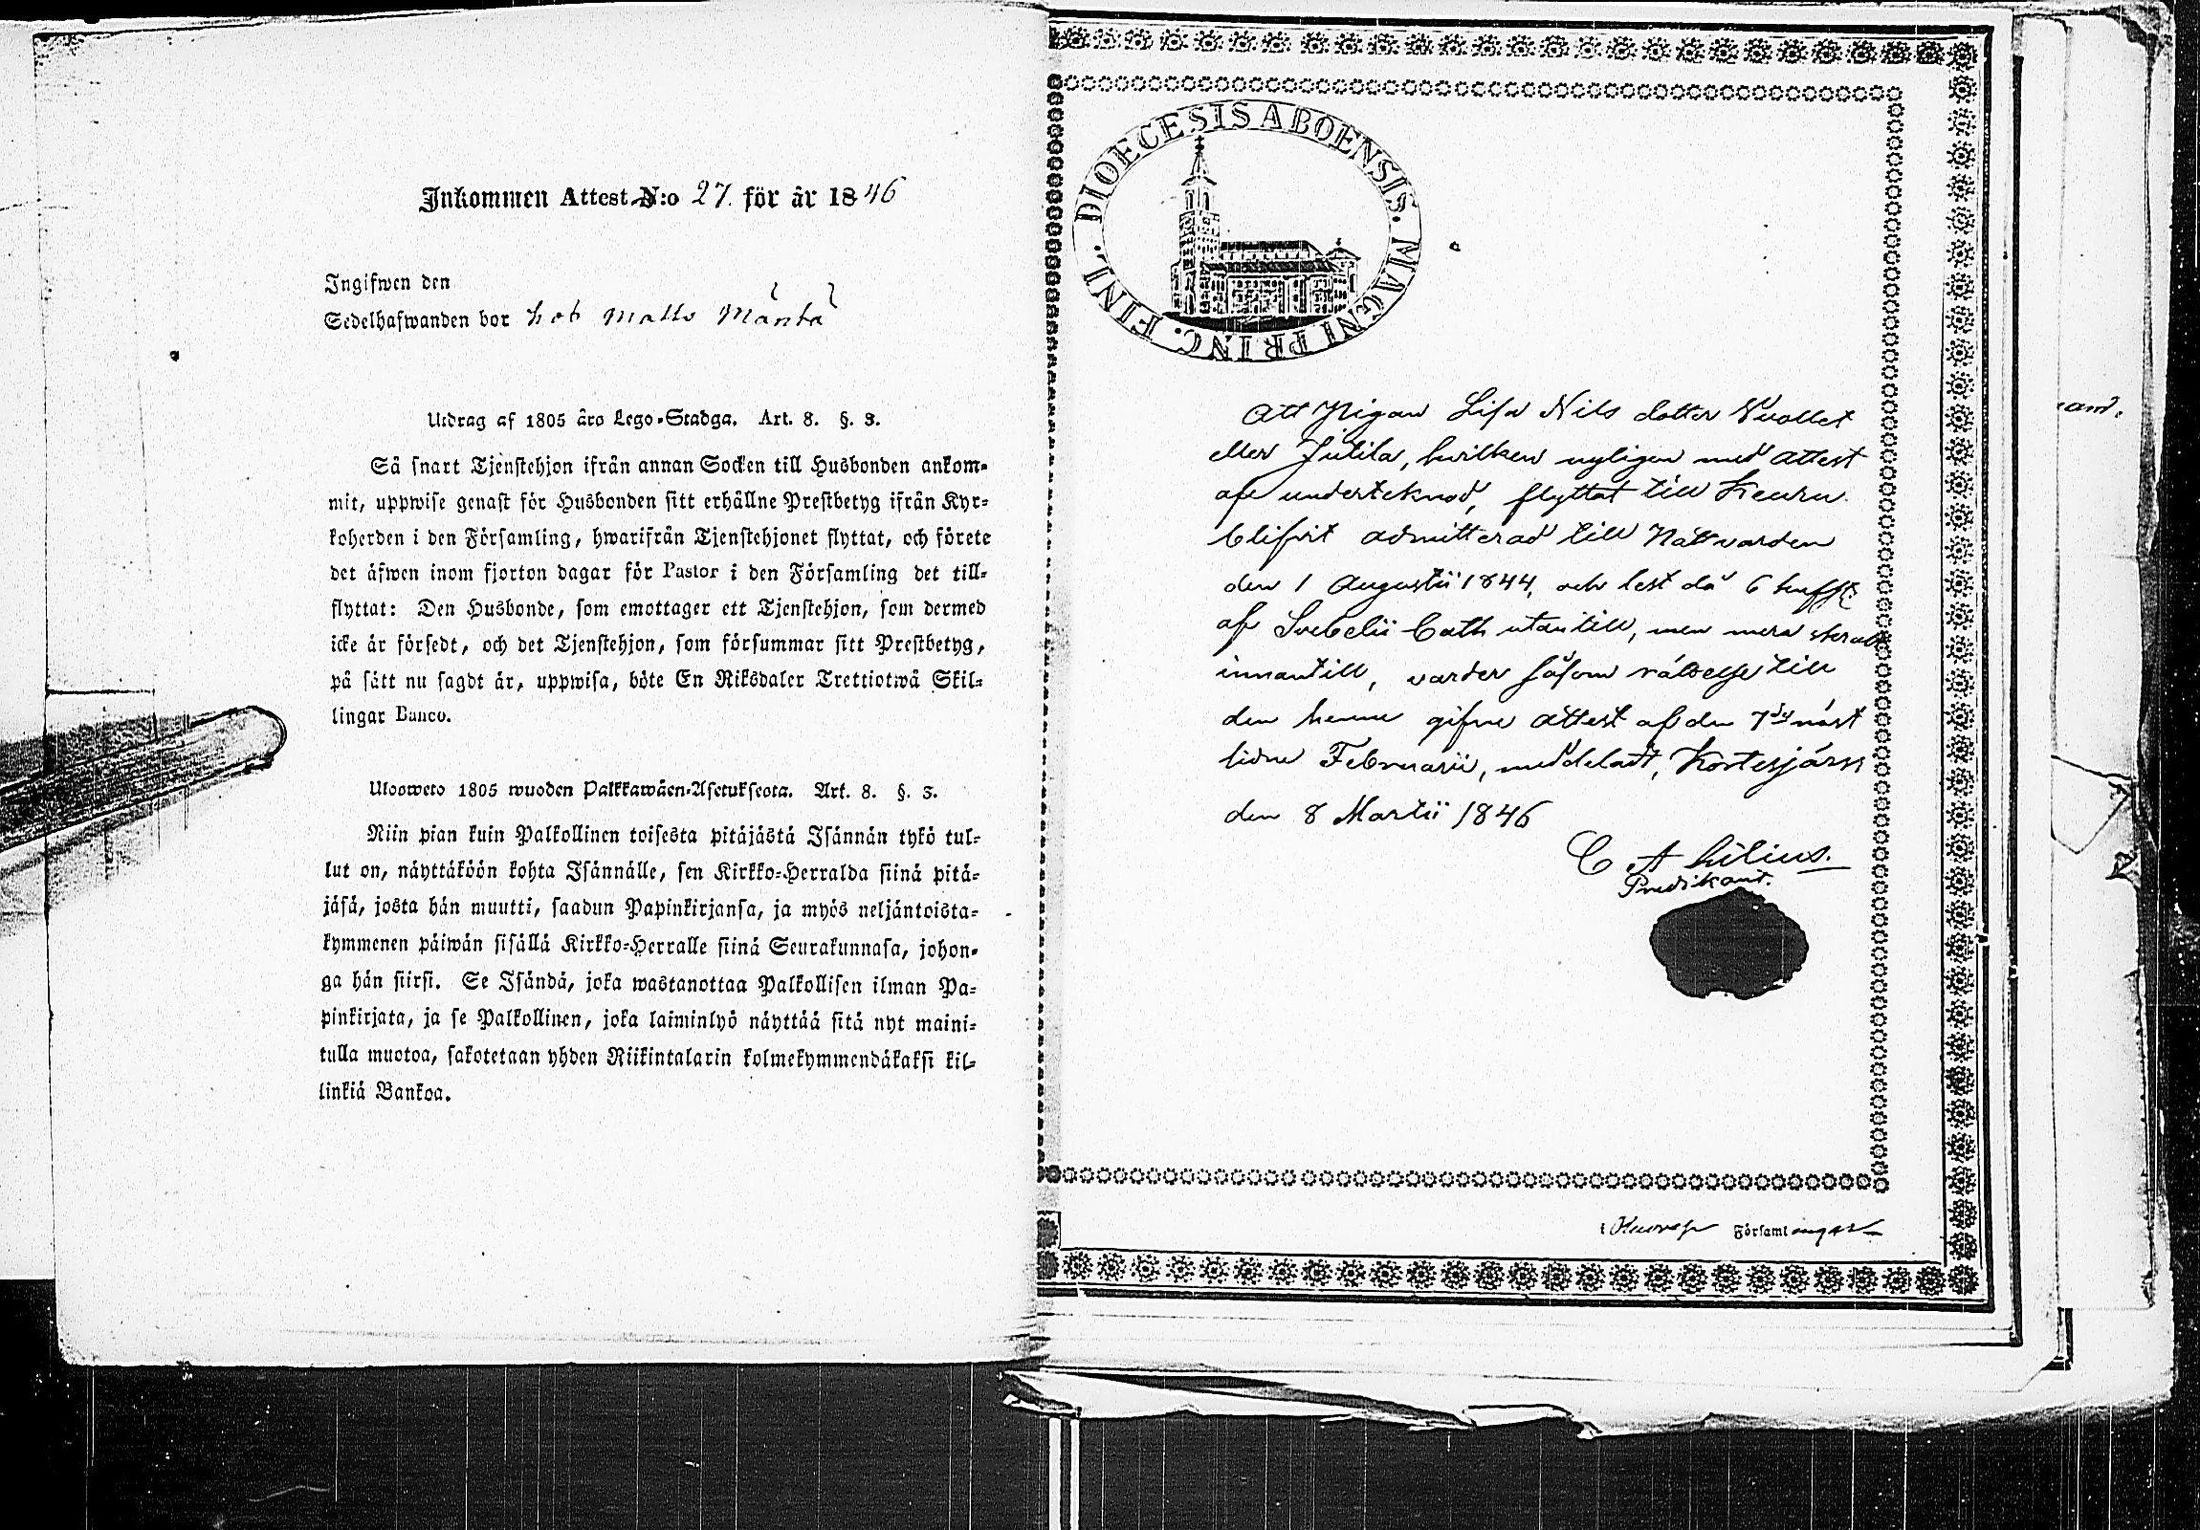 Inkommen Attest N:o 27. för år 1846
Ingifwen den
Sedelhafwanden bor hos Matts Mäntä
Utdrag af 1805 års Lego-Stadga. Art. 8. §. 3.
Så snart Tjenstehjon ifrån annan Socken till Husbonden ankom-
mit, uppwise genast för Husbonden sitt erhållne Prestbetyg ifrån Kyr-
koherden i den Församling, hwarifrån Tjenstehjonet flyttat, och förete
det äfwen inom fjorton dagar för Pastor i den Församling det till-
flyttat: Den Husbonde, som emottager ett Tjenstehjon, som dermed
icke är försedt, och det Tjenstehjon, som försummar sitt Prestbetyg,
på sätt nu sagdt är, uppwisa, böte En Riksdaler Trettiotwå Skil-
lingar Banco.
Uloosweto 1805 wuoden Palkkawäen-Asetuksesta. Art. 8. §. 3.
Niin pian kuin Palkollinen toisesta pitäjästä Isännän tykö tul-
lut on, näyttäköön kohta Isännälle, sen Kirkko-Herralda siinä pitä-
jäsä, josta hän muutti, saadun Papinkirjansa, ja myös neljäntoista-
kymmenen päiwän sisällä Kirkko-Herralle siinä Seurakunnasa, johon-
ga hän siirsi. Se Isändä, joka wastanottaa Palkollisen ilman Pa-
pinkirjata, ja se Palkollinen, joka laiminlyö näyttää sitä nyt maini-
tulla muotoa, sakotetaan yhden Riikintalarin kolmekymmendäkaksi kil-
linkiä Bankoa.
DIOECESIS ABOENSIS. MAGNI PRINC. FINL.
Att Pigan Lisa Nils dotter Vuollet
eller Jutila, hwilken nyligen med attest
af undertecknad, flyttat till Keuru
blifvit admitterad till Nattvarden
den 1 Augustii 1844, och läst då 6 hufst:
af Svebelii Cath utantill, men mera
innantill, varder såsom rättelse till
den henne gifne attest af den 7de näst
lidne Februarii, meddeladt, Kortesjärvi
den 8 Martii 1846
C A Lilius.
Predikant.
i Församlingar
and.